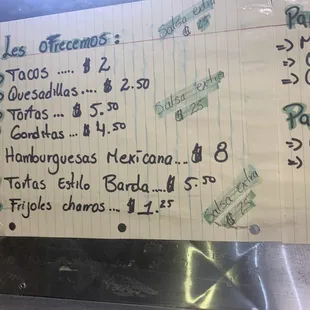 Les ofrecemos:
Tacos ..... $ 2
Quesadillas.... $ 2.50
Tortas ... $ 5.50
Gorditas ... $ 4.50
Hamburguesas Mexicana... $ 8
Tortas Estilo Barda.....$ 5.50
Frijoles charros ... $ 1.25
Salsa extra
$ 25
Salsa extra
$ 25
Salsa extra
$ 25
Pa
=> M
=>
=>
Pa
=>
=>